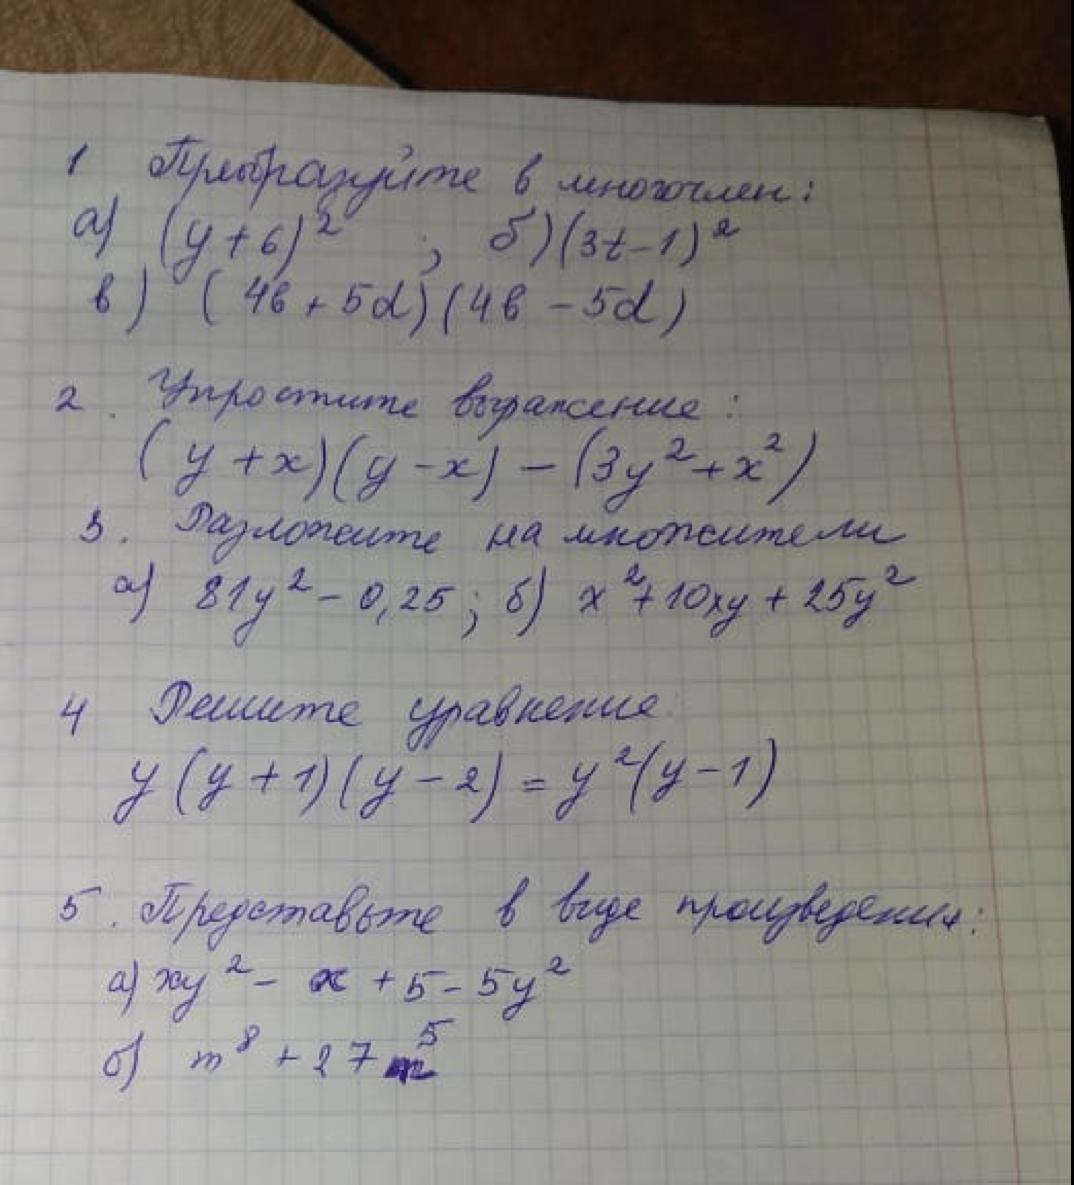 1 Преобразуйте в многочлен:
а) (y+6)² ; б) (3t-1)²
в) (4в + 5d)(4в - 5d)
2. Упростите выражение:
(y+x)(y-x) - (3y²+x²)
3. Разложите на множители
а) 81y² - 0,25; б) x²+10xy+25y²
4 Решите уравнение:
y(y+1)(y-2) = y²(y-1)
5. Представьте в виде произведения:
а) xy² - x + 5 - 5y²
б) m⁸ + 27m⁵